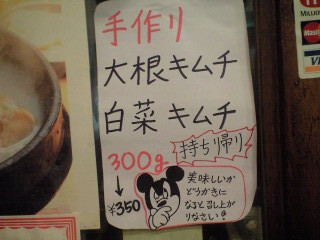 手作り
大根キムチ
白菜キムチ
300g
持ち帰り
↓
¥350
美味しいか
どうかきに
なると召し上が
りなさい!
MasterCard
VISA